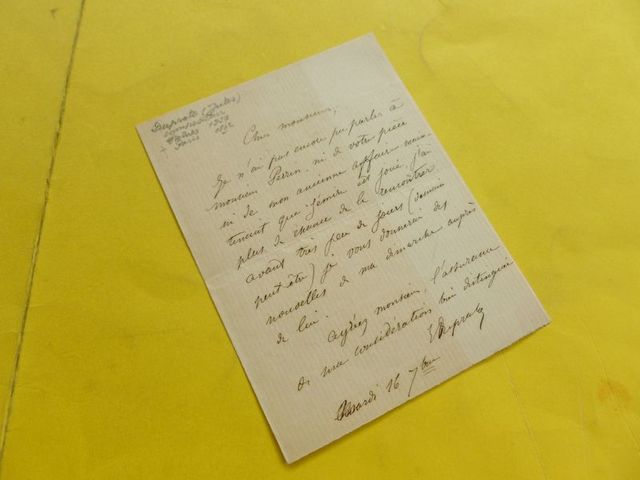 Duprato (Jules)
compositeur
Nîmes 1827
+ Paris 1892
Cher monsieur,
Je n'ai pas encore pu parler à
monsieur Perrin, ni de votre pièce
ni de mon ancienne affaire main
tenant que Zémire est joué, j'ai
plus de chance de le rencontrer
avant très peu de jours (demain
peut être) je vous donnerai des
nouvelles de ma démarche auprès
de lui.
Agréez monsieur, l'assurance
de ma considération bien distinguée
J Duprato
Mardi 16 7bre